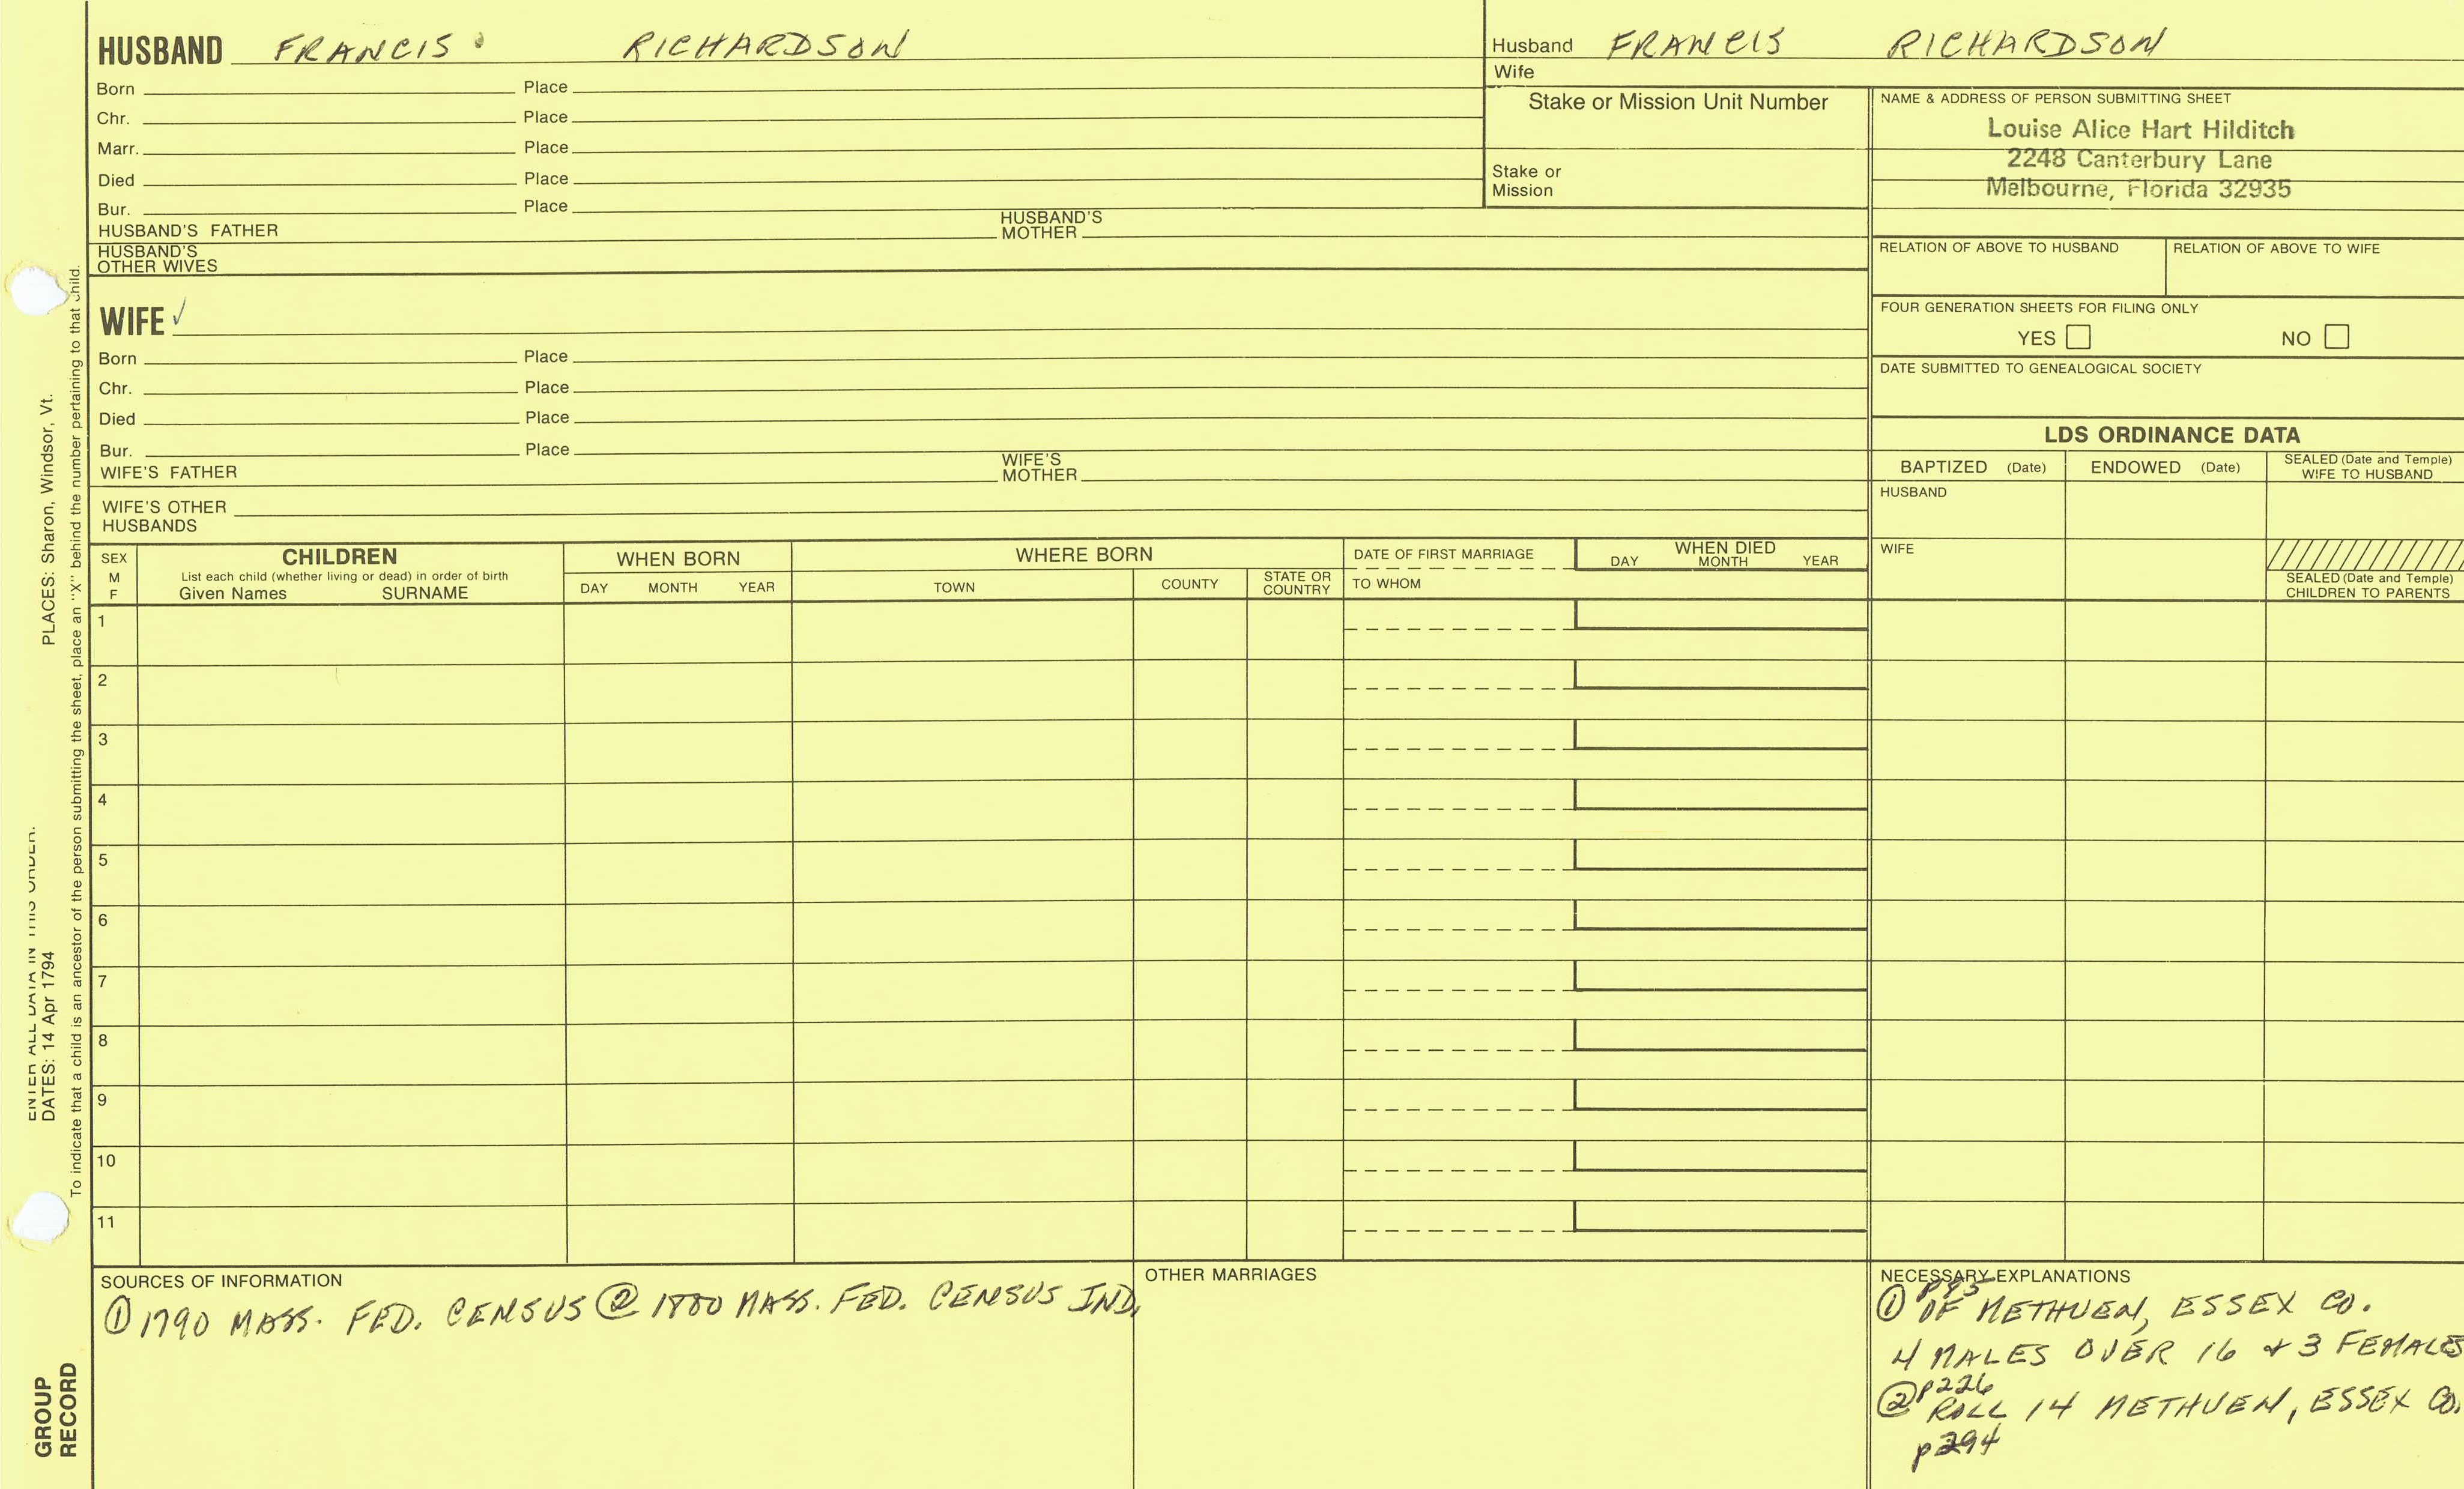 HUSBAND FRANCIS RICHARDSON
Born Place
Chr. Place
Marr. Place
Died Place
Bur. Place
HUSBAND'S FATHER HUSBAND'S MOTHER
HUSBAND'S OTHER WIVES
Husband FRANCIS RICHARDSON
Wife
Stake or Mission Unit Number
Stake or
Mission
NAME & ADDRESS OF PERSON SUBMITTING SHEET
Louise Alice Hart Hilditch
2248 Canterbury Lane
Melbourne, Florida 32935
RELATION OF ABOVE TO HUSBAND RELATION OF ABOVE TO WIFE
FOUR GENERATION SHEETS FOR FILING ONLY
YES NO
DATE SUBMITTED TO GENEALOGICAL SOCIETY
WIFE ✓
Born Place
Chr. Place
Died Place
Bur. Place
WIFE'S FATHER WIFE'S MOTHER
WIFE'S OTHER HUSBANDS
LDS ORDINANCE DATA
BAPTIZED (Date) ENDOWED (Date) SEALED (Date and Temple) WIFE TO HUSBAND
HUSBAND
WIFE
SEALED (Date and Temple) CHILDREN TO PARENTS
SEX M F
CHILDREN
List each child (whether living or dead) in order of birth
Given Names SURNAME
WHEN BORN
DAY MONTH YEAR
WHERE BORN
TOWN COUNTY STATE OR COUNTRY
DATE OF FIRST MARRIAGE
TO WHOM
WHEN DIED
DAY MONTH YEAR
1
2
3
4
5
6
7
8
9
10
11
SOURCES OF INFORMATION
① 1790 MASS. FED. CENSUS ② 1800 MASS. FED. CENSUS IND.
OTHER MARRIAGES
NECESSARY EXPLANATIONS
① OF METHUEN, ESSEX CO.
4 MALES OVER 16 + 3 FEMALES
② p226
ROLL 14 METHUEN, ESSEX CO.
p294
ENTER ALL DATA IN THIS ORDER.
DATES: 14 Apr 1794 PLACES: Sharon, Windsor, Vt.
To indicate that a child is an ancestor of the person submitting the sheet, place an "X" behind the number pertaining to that child.
GROUP
RECORD